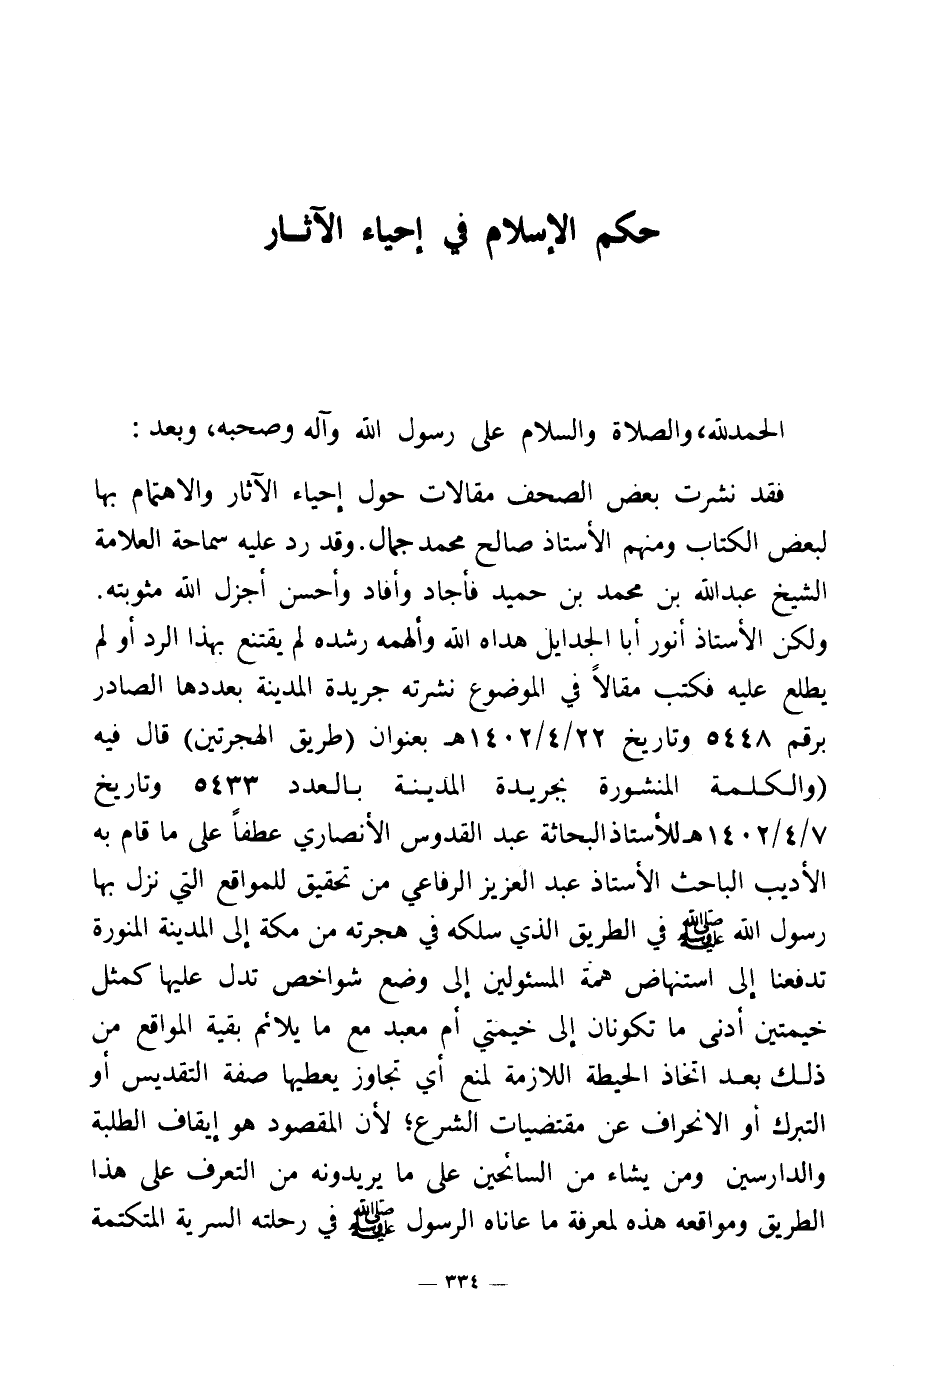 حكم الإسلام في إحياء الآثـار
الحمدلله، والصلاة والسلام على رسول الله وآله وصحبه، وبعد :
فقد نشرت بعض الصحف مقالات حول إحياء الآثار والاهتمام بها
لبعض الكتاب ومنهم الأستاذ صالح محمد جمال. وقد رد عليه سماحة العلامة
الشيخ عبدالله بن محمد بن حميد فأجاد وأفاد وأحسن أجزل الله مثوبته.
ولكن الأستاذ أنور أبا الجدايل هداه الله وألهمه رشده لم يقتنع بهذا الرد أو لم
يطلع عليه فكتب مقالاً في الموضوع نشرته جريدة المدينة بعددها الصادر
برقم ٥٤٤٨ وتاريخ ١٤٠٢/٤/٢٢هـ بعنوان (طريق الهجرتين) قال فيه
(والكلمة المنشورة بجريدة المدينة بالعدد ٥٤٣٣ وتاريخ
١٤٠٢/٤/٧هـ للأستاذ البحاثة عبد القدوس الأنصاري عطفاً على ما قام به
الأديب الباحث الأستاذ عبد العزيز الرفاعي من تحقيق للمواقع التي نزل بها
رسول الله ﷺ في الطريق الذي سلكه في هجرته من مكة إلى المدينة المنورة
تدفعنا إلى استنهاض همة المسئولين إلى وضع شواخص تدل عليها كمثل
خيمتين أدنى ما تكونان إلى خيمتي أم معبد مع ما يلائم بقية المواقع من
ذلـك بعـد اتخاذ الحيطة اللازمة لمنع أي تجاوز يعطيها صفة التقديس أو
التبرك أو الانحراف عن مقتضيات الشرع؛ لأن المقصود هو إيقاف الطلبة
والدارسين ومن يشاء من السائحين على ما يريدونه من التعرف على هذا
الطريق ومواقعه هذه لمعرفة ما عاناه الرسول ﷺ في رحلته السرية المتكتمة
— ٣٣٤ —